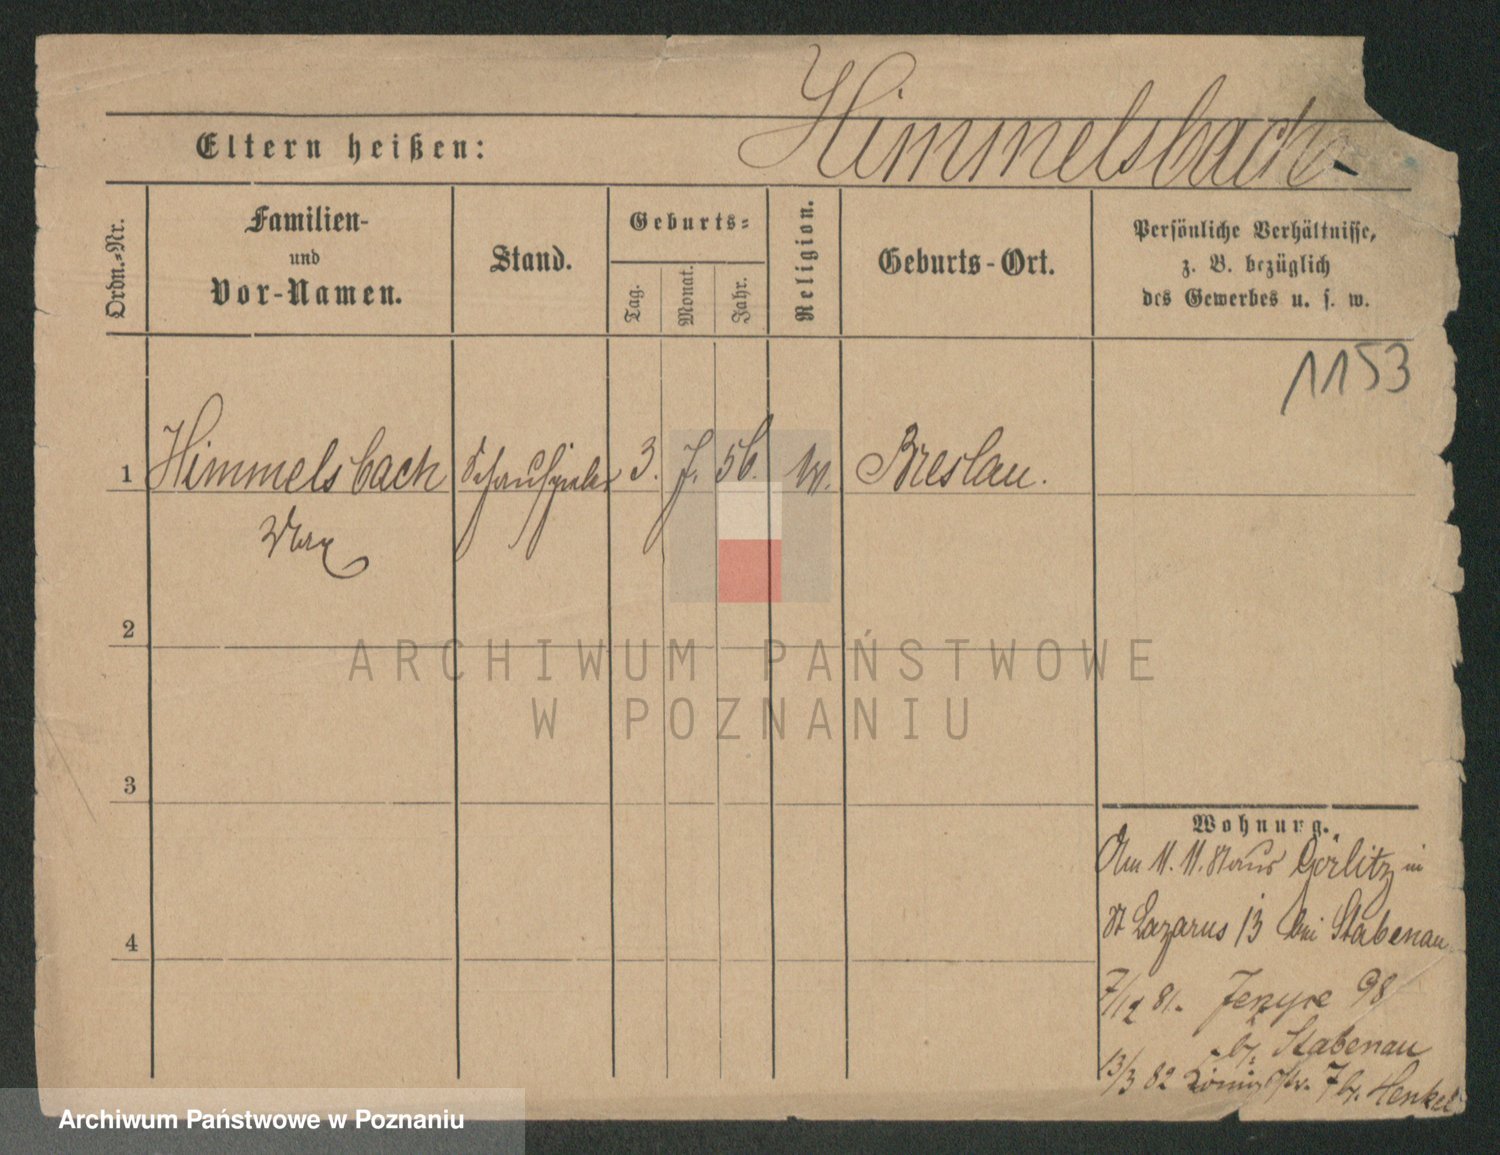 Himmelsbach
Eltern heißen:
Ordn.-Nr.
Familien-
und
Vor-Namen.
Stand.
Geburts-
Tag.
Monat.
Jahr.
Religion.
Geburts-Ort.
Persönliche Verhältnisse,
z. B. bezüglich
des Gewerbes u. s. w.
1153
1 Himmelsbach Schauspieler 3. 7. 56. Breslau.
Max
2
3
4
Wohnung.
Am 11. 11. aus Görlitz in
St Lazarus 13 bei Stabenau
7/12 81. Jerzyce 98
b/. Stabenau
13/3 82 Königstr. 7 b/. Henkel
ARCHIWUM PAŃSTWOWE
W POZNANIU
Archiwum Państwowe w Poznaniu